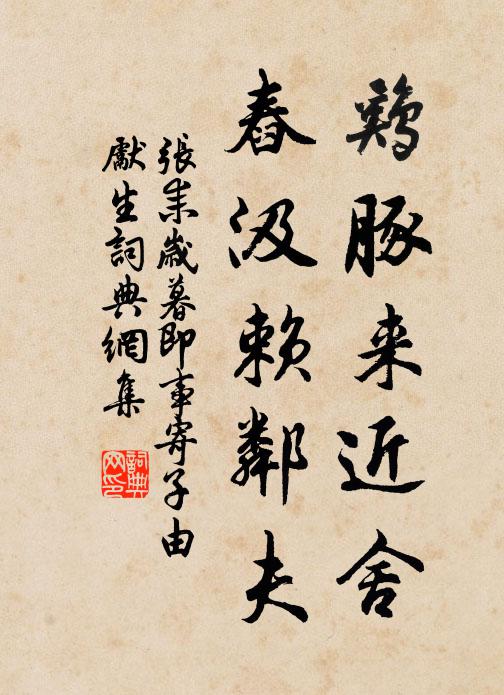 鷄豚来近舍
舂汲赖鄰夫
張耒歲暮即事寄子由
獻生詞典網集
詞典網印